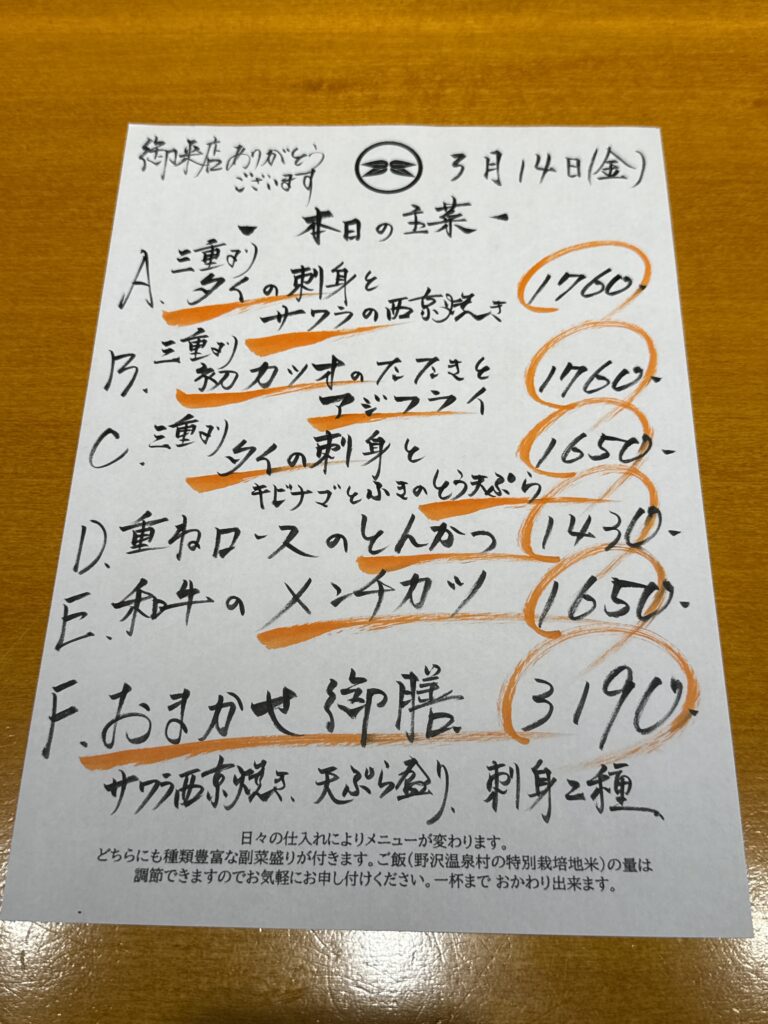 御来店ありがとう
ございます
3月14日(金)
本日の主菜
A. 三重より
タイの刺身と
サワラの西京焼き 1760-
B. 三重より
初カツオのたたきと 1760-
アジフライ
C. 三重より
タイの刺身と 1650-
キビナゴとふきのとう天ぷら
D. 重ねロースのとんかつ 1430-
E. 和牛のメンチカツ 1650-
F. おまかせ御膳 3190-
サワラ西京焼き、天ぷら盛り、刺身2種
日々の仕入れによりメニューが変わります。
どちらにも種類豊富な副菜盛りが付きます。ご飯(野沢温泉村の特別栽培地米)の量は
調節できますのでお気軽にお申し付けください。一杯まで おかわり出来ます。